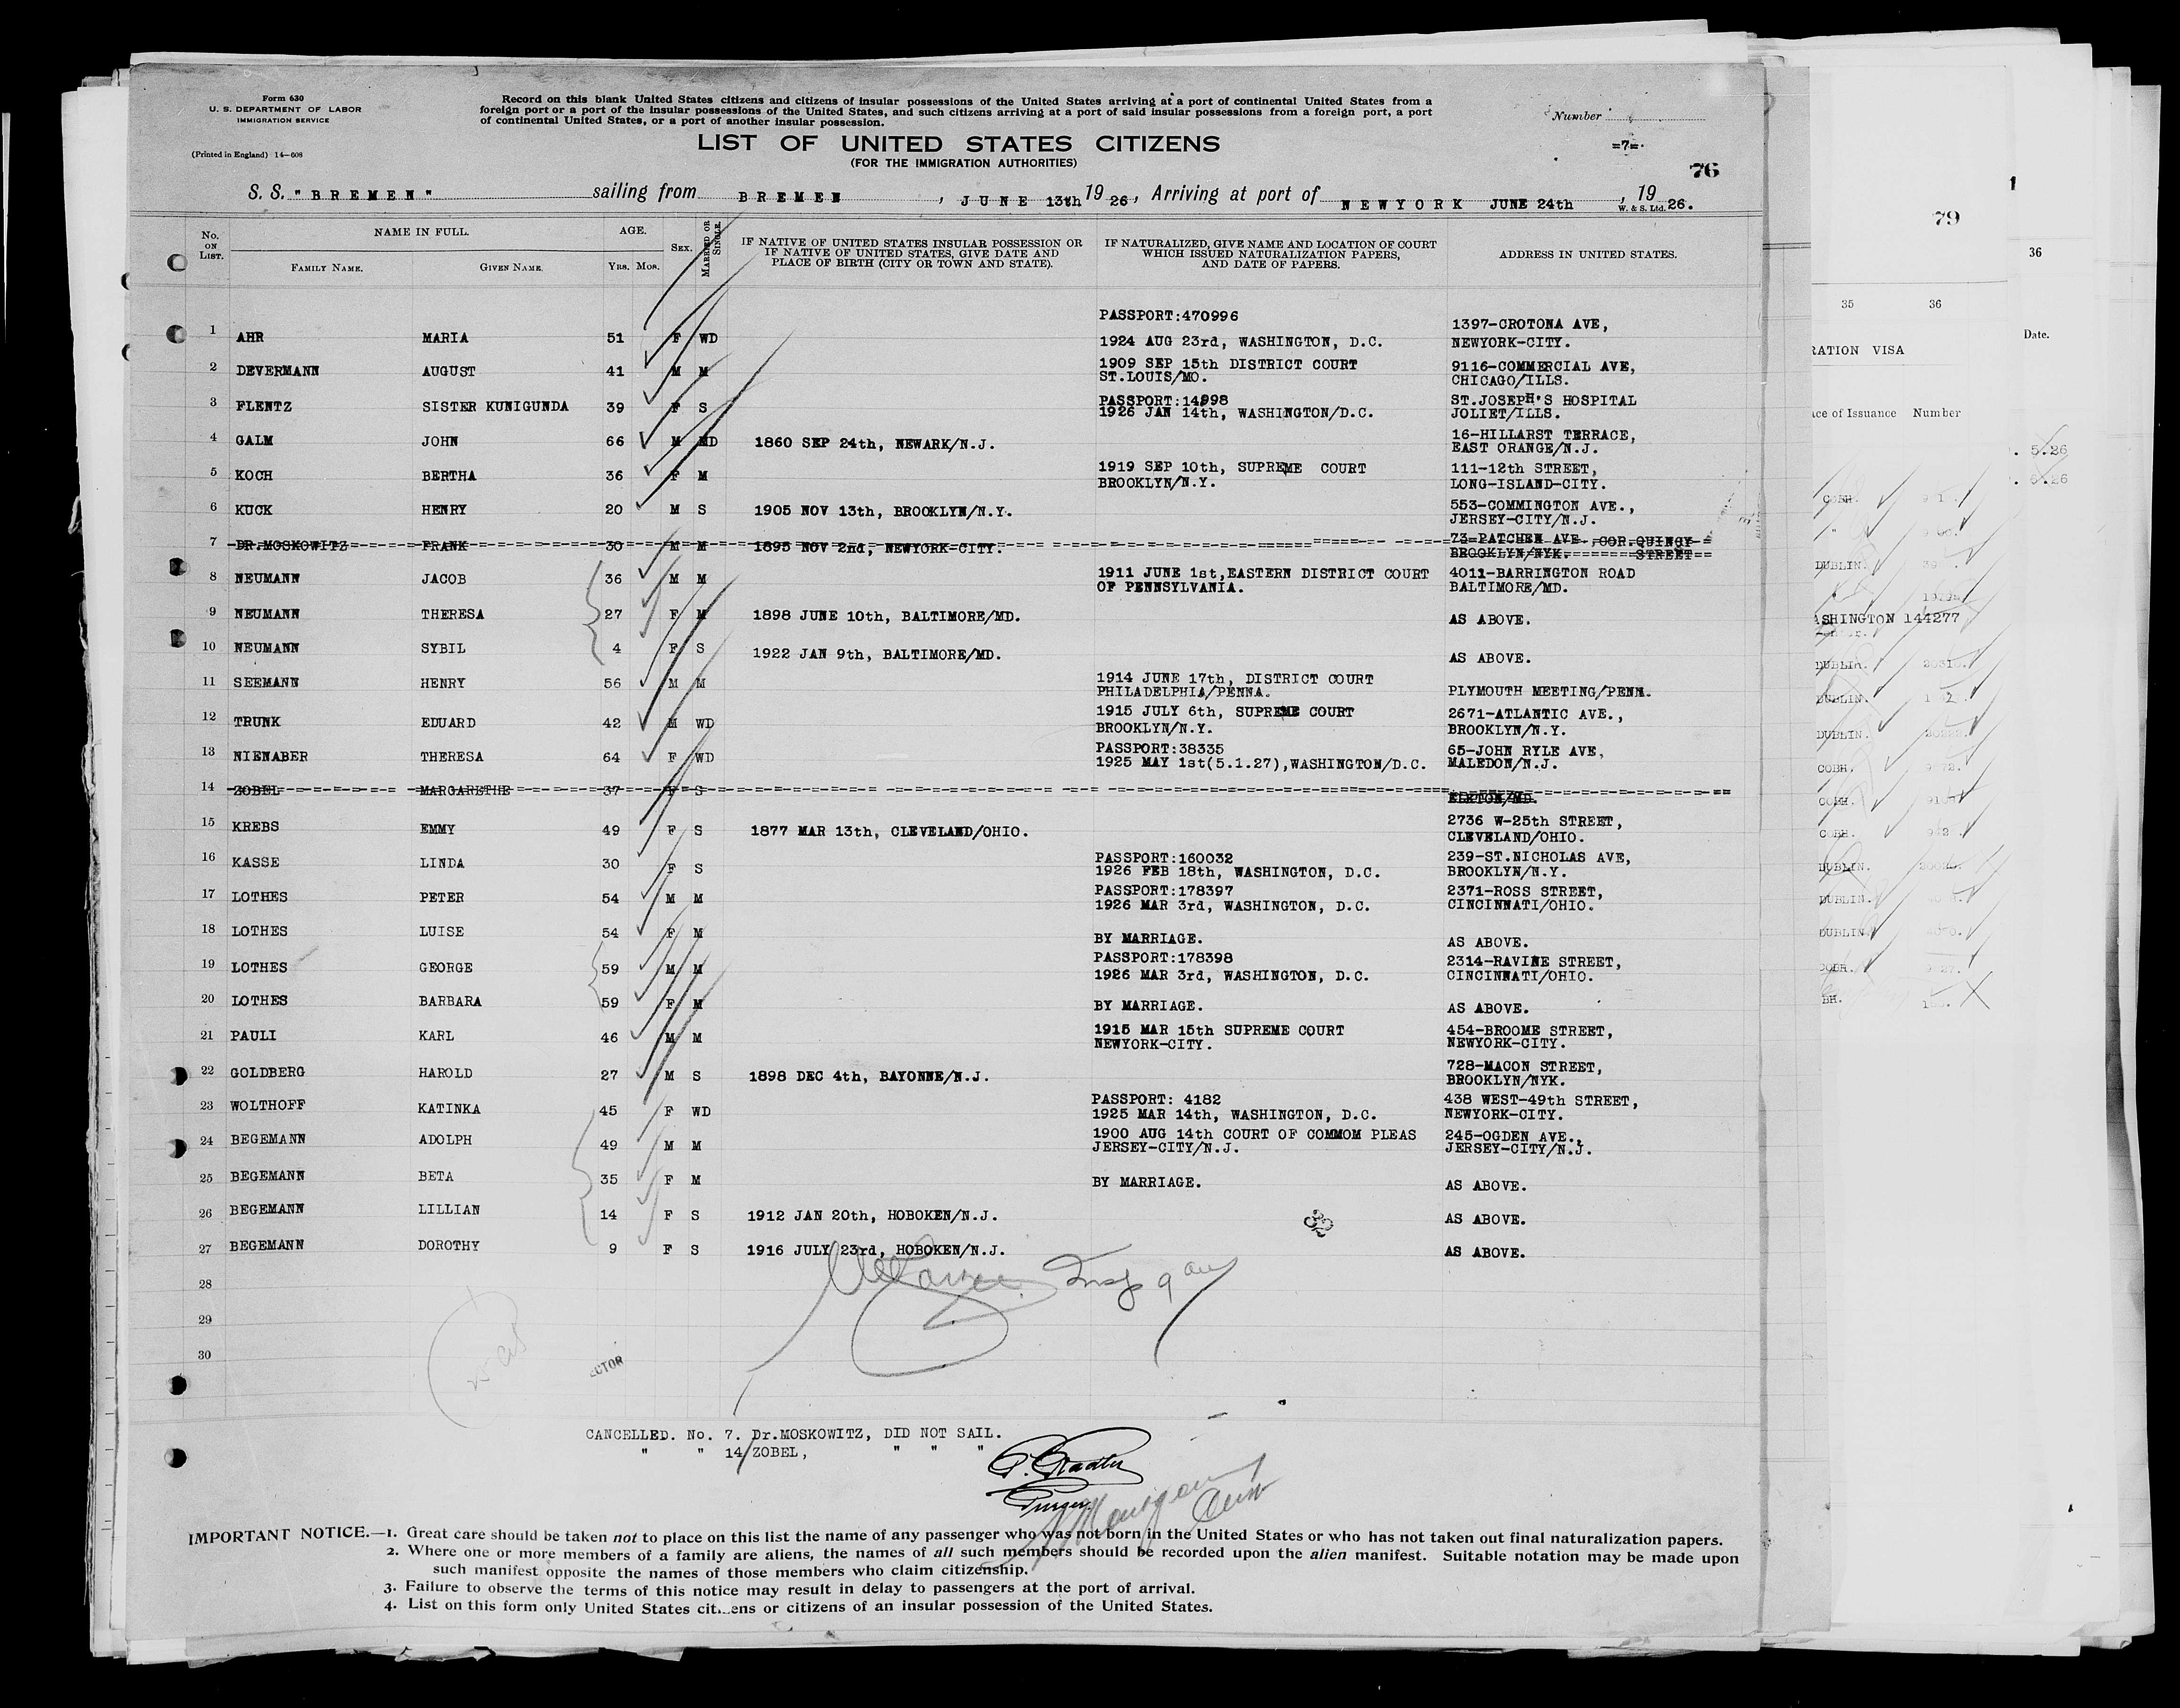 Form 630
U. S. DEPARTMENT OF LABOR
IMMIGRATION SERVICE
(Printed in England) 14—608
Record on this blank United States citizens and citizens of insular possessions of the United States arriving at a port of continental United States from a
foreign port or a port of the insular possessions of the United States, and such citizens arriving at a port of said insular possessions from a foreign port, a port
of continental United States, or a port of another insular possession.
LIST OF UNITED STATES CITIZENS
(FOR THE IMMIGRATION AUTHORITIES)
Number
=7=.
76
S. S. "BREMEN" sailing from BREMEN, JUNE 13th 19 26, Arriving at port of NEWYORK JUNE 24th, 19 26.
W. & S. Ltd.
No. ON LIST. NAME IN FULL. AGE. SEX. MARRIED OR SINGLE. IF NATIVE OF UNITED STATES INSULAR POSSESSION OR IF NATIVE OF UNITED STATES, GIVE DATE AND PLACE OF BIRTH (CITY OR TOWN AND STATE). IF NATURALIZED, GIVE NAME AND LOCATION OF COURT WHICH ISSUED NATURALIZATION PAPERS, AND DATE OF PAPERS. ADDRESS IN UNITED STATES.
FAMILY NAME. GIVEN NAME. YRS. MOS.
1 AHR MARIA 51 F WD PASSPORT:470996 1924 AUG 23rd, WASHINGTON, D.C. 1397-CROTONA AVE, NEWYORK-CITY.
2 DEVERMANN AUGUST 41 M M 1909 SEP 15th DISTRICT COURT ST.LOUIS/MO. 9116-COMMERCIAL AVE, CHICAGO/ILLS.
3 FLENTZ SISTER KUNIGUNDA 39 F S PASSPORT:14998 1926 JAN 14th, WASHINGTON/D.C. ST.JOSEPH'S HOSPITAL JOLIET/ILLS.
4 GALM JOHN 66 M MD 1860 SEP 24th, NEWARK/N.J. 16-HILLARST TERRACE, EAST ORANGE/N.J.
5 KOCH BERTHA 36 F M 1919 SEP 10th, SUPREME COURT BROOKLYN/N.Y. 111-12th STREET, LONG-ISLAND-CITY.
6 KUCK HENRY 20 M S 1905 NOV 13th, BROOKLYN/N.Y. 553-COMMINGTON AVE., JERSEY-CITY/N.J.
7 DR.MOSKOWITZ FRANK 30 M M 1895 NOV 2nd, NEWYORK-CITY. 73-PATCHEN AVE. COR.QUINCY BROOKLYN/NYK. STREET
8 NEUMANN JACOB 36 M M 1911 JUNE 1st,EASTERN DISTRICT COURT OF PENNSYLVANIA. 4011-BARRINGTON ROAD BALTIMORE/MD.
9 NEUMANN THERESA 27 F M 1898 JUNE 10th, BALTIMORE/MD. AS ABOVE.
10 NEUMANN SYBIL 4 F S 1922 JAN 9th, BALTIMORE/MD. AS ABOVE.
11 SEEMANN HENRY 56 M M 1914 JUNE 17th, DISTRICT COURT PHILADELPHIA/PENNA. PLYMOUTH MEETING/PENN.
12 TRUNK EDUARD 42 M WD 1915 JULY 6th, SUPREME COURT BROOKLYN/N.Y. 2671-ATLANTIC AVE., BROOKLYN/N.Y.
13 NIENABER THERESA 64 F WD PASSPORT:38335 1925 MAY 1st(5.1.27),WASHINGTON/D.C. 65-JOHN RYLE AVE, MALEDON/N.J.
14 ZOBEL MARGARETHE 37 F S ELKTON/MD.
15 KREBS EMMY 49 F S 1877 MAR 13th, CLEVELAND/OHIO. 2736 W-25th STREET, CLEVELAND/OHIO.
16 KASSE LINDA 30 F S PASSPORT:160032 1926 FEB 18th, WASHINGTON, D.C. 239-ST.NICHOLAS AVE, BROOKLYN/N.Y.
17 LOTHES PETER 54 M M PASSPORT:178397 1926 MAR 3rd, WASHINGTON, D.C. 2371-ROSS STREET, CINCINNATI/OHIO.
18 LOTHES LUISE 54 F M BY MARRIAGE. AS ABOVE.
19 LOTHES GEORGE 59 M M PASSPORT:178398 1926 MAR 3rd, WASHINGTON, D.C. 2314-RAVINE STREET, CINCINNATI/OHIO.
20 LOTHES BARBARA 59 F M BY MARRIAGE. AS ABOVE.
21 PAULI KARL 46 M M 1915 MAR 15th SUPREME COURT NEWYORK-CITY. 454-BROOME STREET, NEWYORK-CITY.
22 GOLDBERG HAROLD 27 M S 1898 DEC 4th, BAYONNE/N.J. 728-MACON STREET, BROOKLYN/NYK.
23 WOLTHOFF KATINKA 45 F WD PASSPORT: 4182 1925 MAR 14th, WASHINGTON, D.C. 438 WEST-49th STREET, NEWYORK-CITY.
24 BEGEMANN ADOLPH 49 M M 1900 AUG 14th COURT OF COMMOM PLEAS JERSEY-CITY/N.J. 245-OGDEN AVE., JERSEY-CITY/N.J.
25 BEGEMANN BETA 35 F M BY MARRIAGE. AS ABOVE.
26 BEGEMANN LILLIAN 14 F S 1912 JAN 20th, HOBOKEN/N.J. AS ABOVE.
27 BEGEMANN DOROTHY 9 F S 1916 JULY 23rd, HOBOKEN/N.J. AS ABOVE.
28
29
30
ECTOR
CANCELLED. No. 7. Dr.MOSKOWITZ, DID NOT SAIL.
" " 14/ZOBEL, " " "
Purser
IMPORTANT NOTICE.—1. Great care should be taken not to place on this list the name of any passenger who was not born in the United States or who has not taken out final naturalization papers.
2. Where one or more members of a family are aliens, the names of all such members should be recorded upon the alien manifest. Suitable notation may be made upon
such manifest opposite the names of those members who claim citizenship.
3. Failure to observe the terms of this notice may result in delay to passengers at the port of arrival.
4. List on this form only United States citizens or citizens of an insular possession of the United States.
79
36
35 36
Date.
RATION VISA
ace of Issuance Number
5.26
COBH.
DUBLIN.
ASHINGTON 144277
DUBLIN.
DUBLIN.
DUBLIN.
COBH.
COBH.
COBH.
DUBLIN.
DUBLIN.
DUBLIN.
BH.